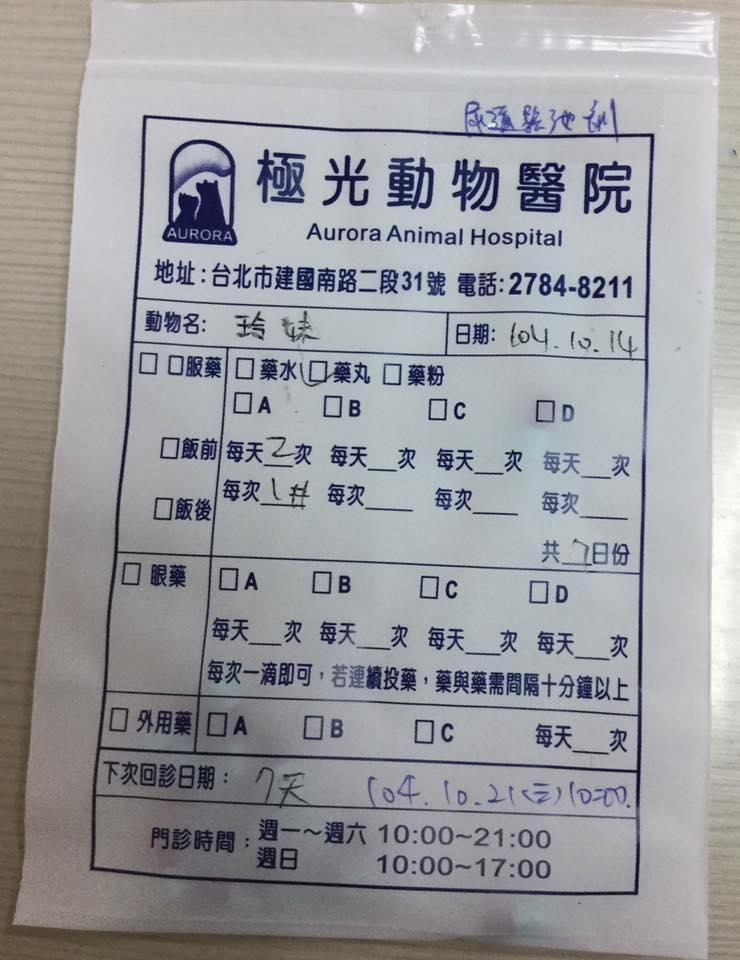 極光動物醫院
AURORA
Aurora Animal Hospital
地址:台北市建國南路二段31號 電話:2784-8211
動物名: 玲妹 日期: 104.10.14
□ 口服藥 □藥水 □藥丸 □藥粉
□A □B □C □D
□飯前 每天2次 每天__次 每天__次 每天__次
□飯後 每次1# 每次___ 每次___ 每次___
共7日份
□ 眼藥 □A □B □C □D
每天__次 每天__次 每天__次 每天__次
每次一滴即可,若連續投藥,藥與藥需間隔十分鐘以上
□ 外用藥 □A □B □C 每天__次
下次回診日期: 7天 104.10.21(三)10:00.
門診時間: 週一~週六 10:00~21:00
週日 10:00~17:00